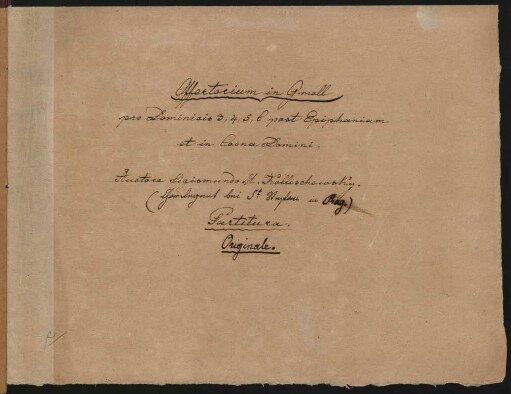 Offertorium in Gmoll
pro Dominicis 3, 4, 5, 6 post Epiphaniam
et in Coena Domini.
Auctore Sigismundo M. Kolleschowsky.
( bei St in Prag.)
Partitura.
Originale.